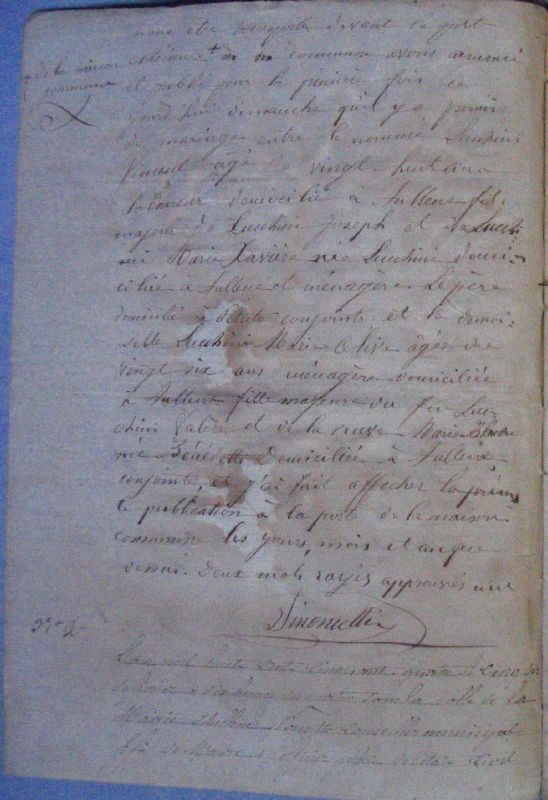 nous être transporté devant la porte
+ de la maison commune
extérieure + de la commune avons annoncé
et publié pour la première fois ce
jourd'hui dimanche qu'il y a promesse
de mariage entre le nommé Lucchini
Vincent âgé de vingt-huit ans
laboureur domicilié à Aullene fils
majeur de Lucchini Joseph et de Lucchi
ni Marie Xavière née Lucchini domi-
ciliée à Aullene et ménagère Le père
domicilié à conjoints et la demoi-
selle Lucchini Marie Olive âgée de
vingt six ans ménagère domiciliée
à Aullene fille majeure du feu Luc-
chini Valère et de la veuve Marie
née Bénédetti domiciliée à Aullene
conjoints, et j'ai fait afficher la présen
te publication à la porte de la maison
commune les jours, mois et an que
dessus. Deux mots rayés approuvés nul
Simonetti
N° 2
L'an mil huit cent cinquante quatre
à dix heures du matin dans la salle de la
Mairie conseiller municipal
officier public de l'état civil